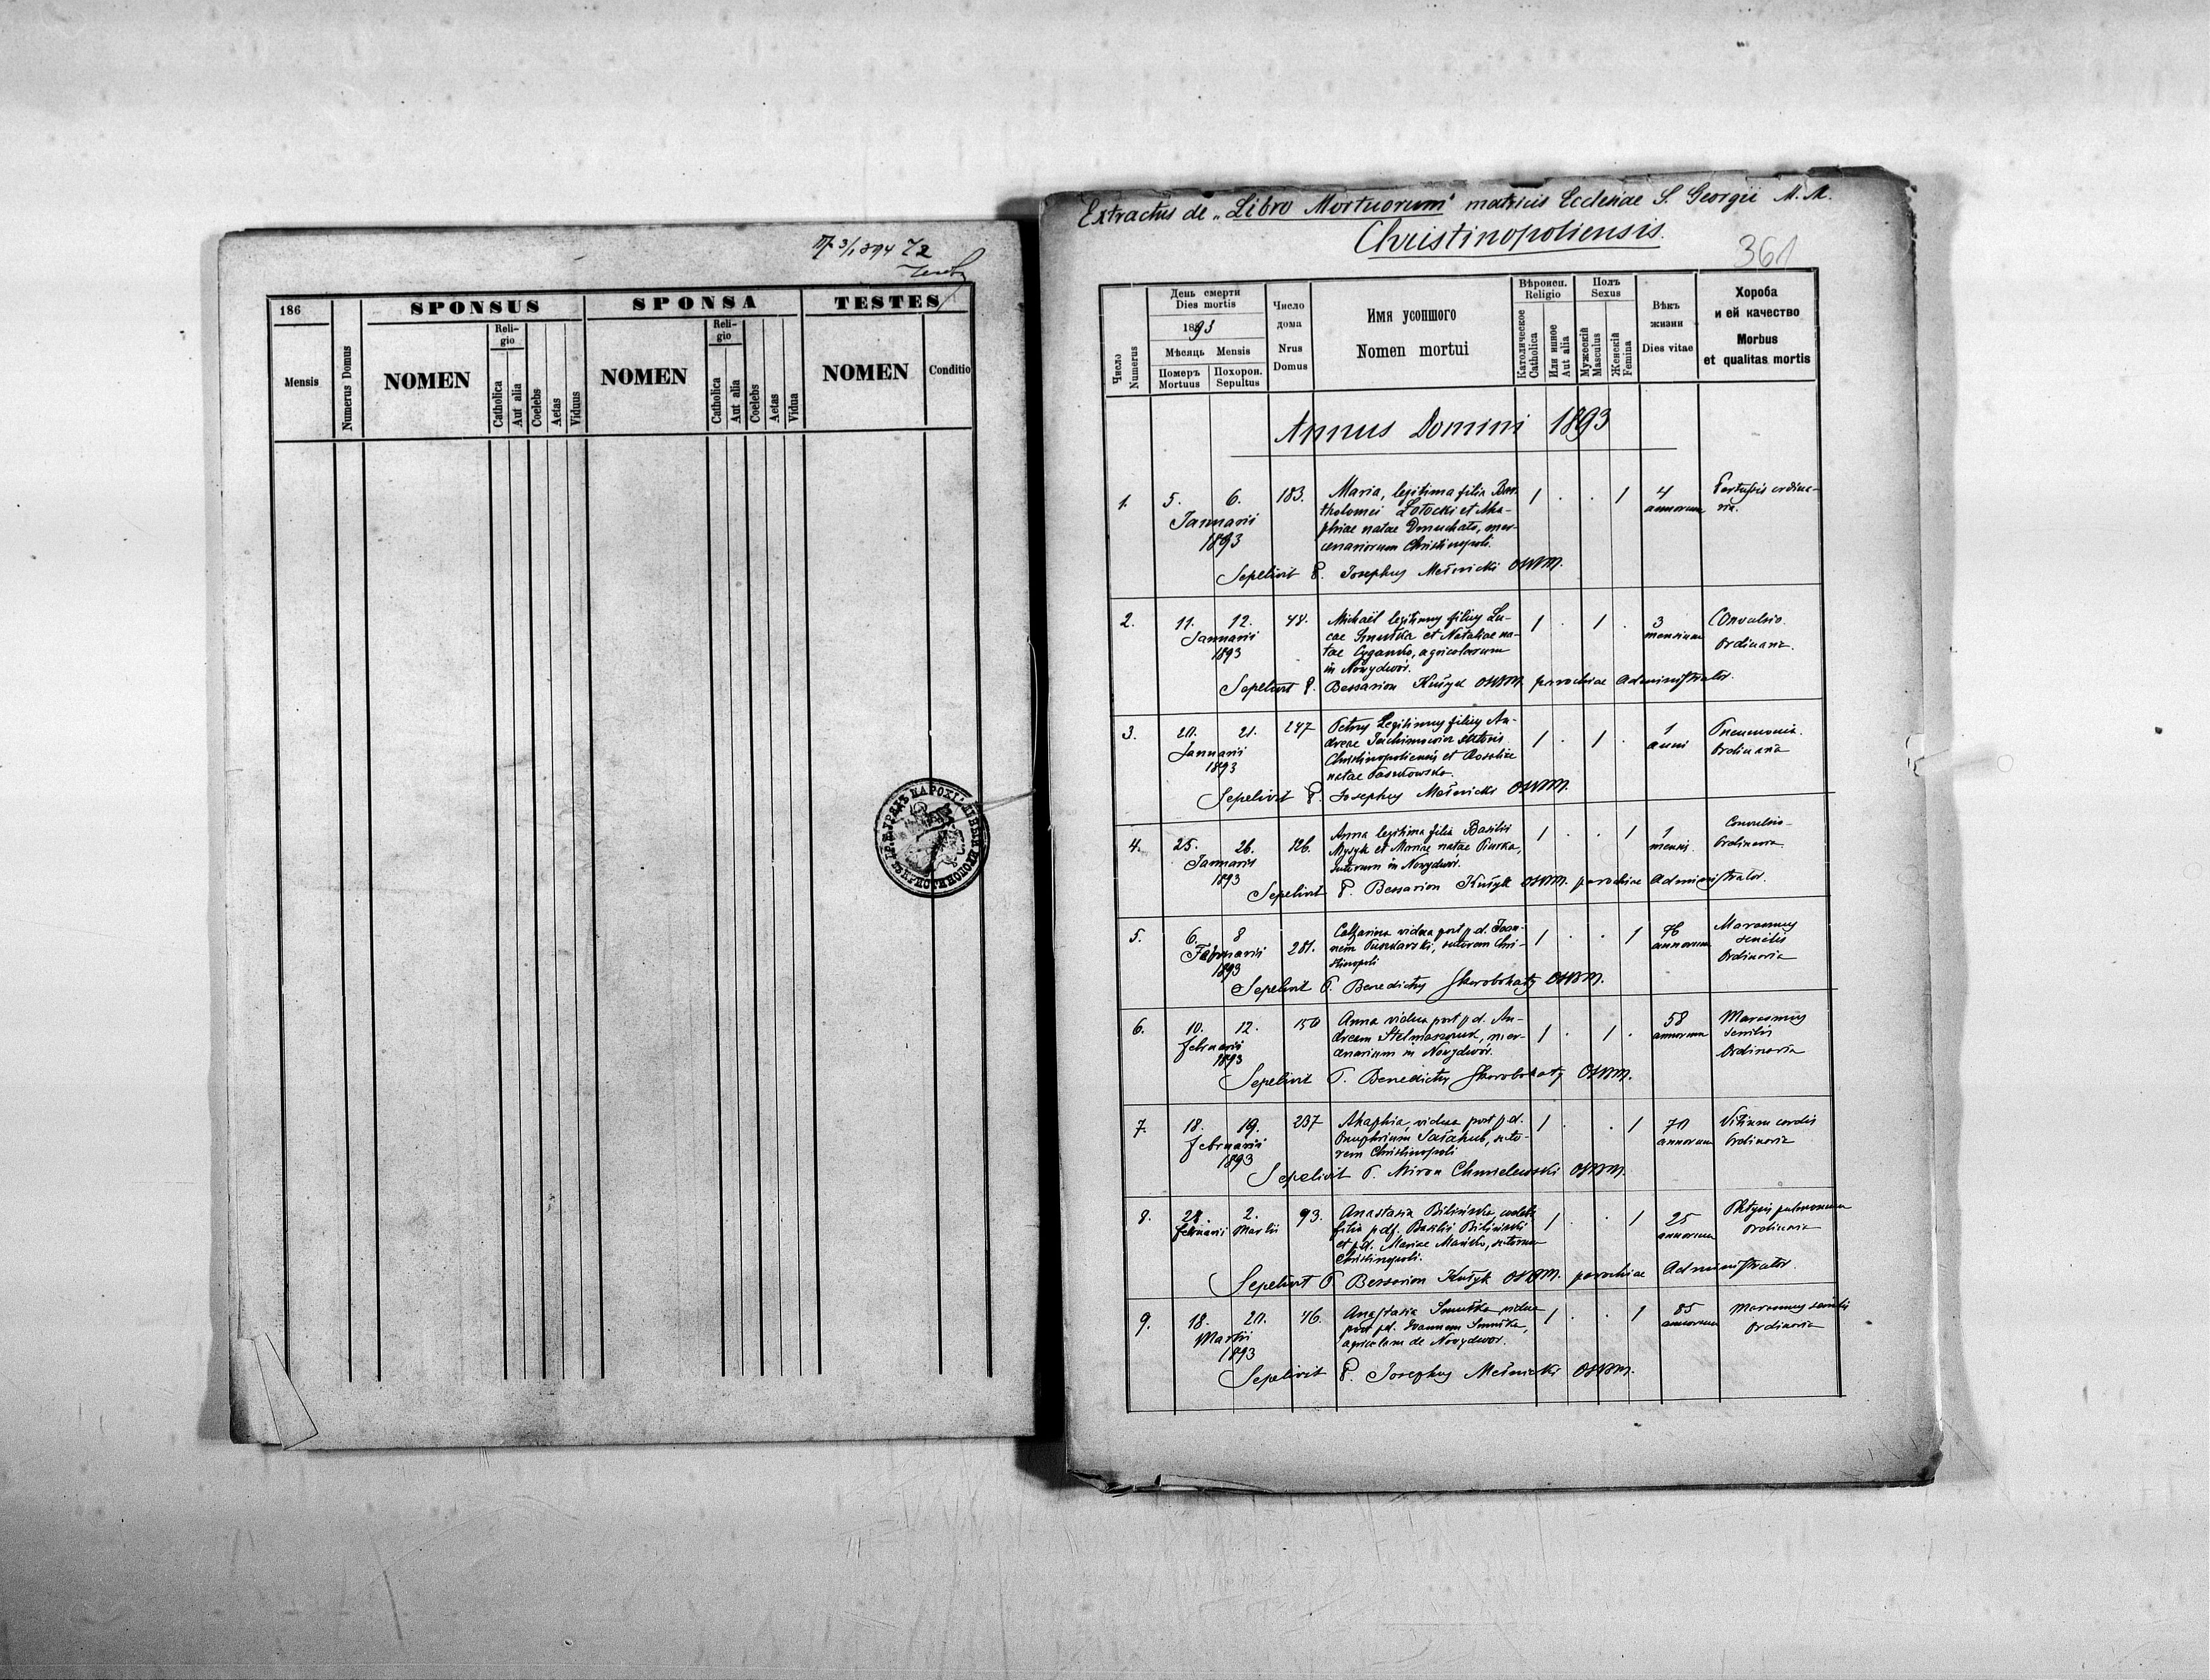 186
SPONSUS
SPONSA
TESTES
Mensis
Numerus Domus
NOMEN
Reli-
gio
Catholica
Aut alia
Coelebs
Aetas
Viduus
NOMEN
Reli-
gio
Catholica
Aut alia
Coelebs
Aetas
Vidua
NOMEN
Conditio
Extractus de „Libro Mortuorum" matricis Ecclesiae S. Georgii M. M.
Christinopoliensis.
361
Число
Numerus
День смерти
Dies mortis
1893
Мѣсяць Mensis
Померъ
Mortuus
Похорон.
Sepultus
Число
дома
Nrus
Domus
Имя усопшого
Nomen mortui
Вѣроисп.
Religio
Католическое
Catholica
Или инное
Aut alia
Полъ
Sexus
Мужескій
Masculus
Женскій
Femina
Вѣкъ
жизни
Dies vitae
Хороба
и ей качество
Morbus
et qualitas mortis
Annus Domini 1893
1. 5. 6. 183. Maria, legitima filia Bar- 1 . . 1 4 Pertussis ordina-
Januarii tholomei Łotocki et Aha- annorum ria.
1893 phiae natae Denuchats, mer-
cenariorum Christinopoli.
Sepelivit P. Josephus Melnicki OSBM.
2. 11. 12. 48. Michaël legitimus filius Lu- 1 . 1 . 3 Convulsio
Januarii cae Smutka et Nataliae na- mensium Ordinaria.
1893 tae Cyganko, agricolarum
in Nowydwór.
Sepelivit P. Bessarion Kušyk OSBM. parochiae Administrator.
3. 20. 21. 247 Petrus Legitimus filius An- 1 . 1 . 1 Pneumonia.
Januarii dreae Jachimowicz sutoris anni Ordinaria
1893 Christinopoliensis et Rosaliae
natae Paszkowska.
Sepelivit P. Josephus Melnicki OSBM.
4. 25. 26. 126. Anna legitima filia Basilii 1 . . 1 1 Convulsio
Januarii Mysyk et Mariae natae Piurka, mensis. Ordinaria.
1893 sutorum in Nowydwór.
Sepelivit P. Bessarion Kušyk OSBM. parochiae Administrator.
5. 6. 8 281. Catharina vidua post p.d. Joan- 1 . . 1 76 Marasmus
Februarii nem, sutorem Chri- annorum senilis
1893 stinopoli Ordinaria
Sepelivit P. Benedictus Skorobohaty OSBM.
6. 10. 12. 150 Anna vidua post p.d. An- 1 . 1 . 58 Marasmus
Februarii dream Stelmaszczuk, mer- annorum senilis
1893 cenarium in Nowydwór. Ordinaria
Sepelivit P. Benedictus Skorobohaty OSBM.
7. 18. 19. 237 Ahaphia, vidua post p.d. 1 . . 1 70 Vitium cordis
Februarii Onuphrium Sałahub, suto- annorum Ordinaria
1893 rem Christinopoli
Sepelivit P. Miron Chmielewski OSBM.
8. 28. 2. 93. Anastasia Bilinska, coelebs 1 . . 1 25 Phtysis pulmonum
Februarii Martii filia p.df. Basilii Bilinski annorum Ordinaria
et p.d. Mariae Mańko, sutorum
Christinopoli.
Sepelivit P Bessarion Kušyk OSBM. parochiae Administrator.
9. 18. 20. 46. Anastasia Smutka vidua 1 . . 1 85 Marasmus senilis
Martii post p.d. Joannem Smutka, annorum Ordinaria
1893 agricolam de Nowydwor.
Sepelivit P. Josephus Melnicki OSBM.